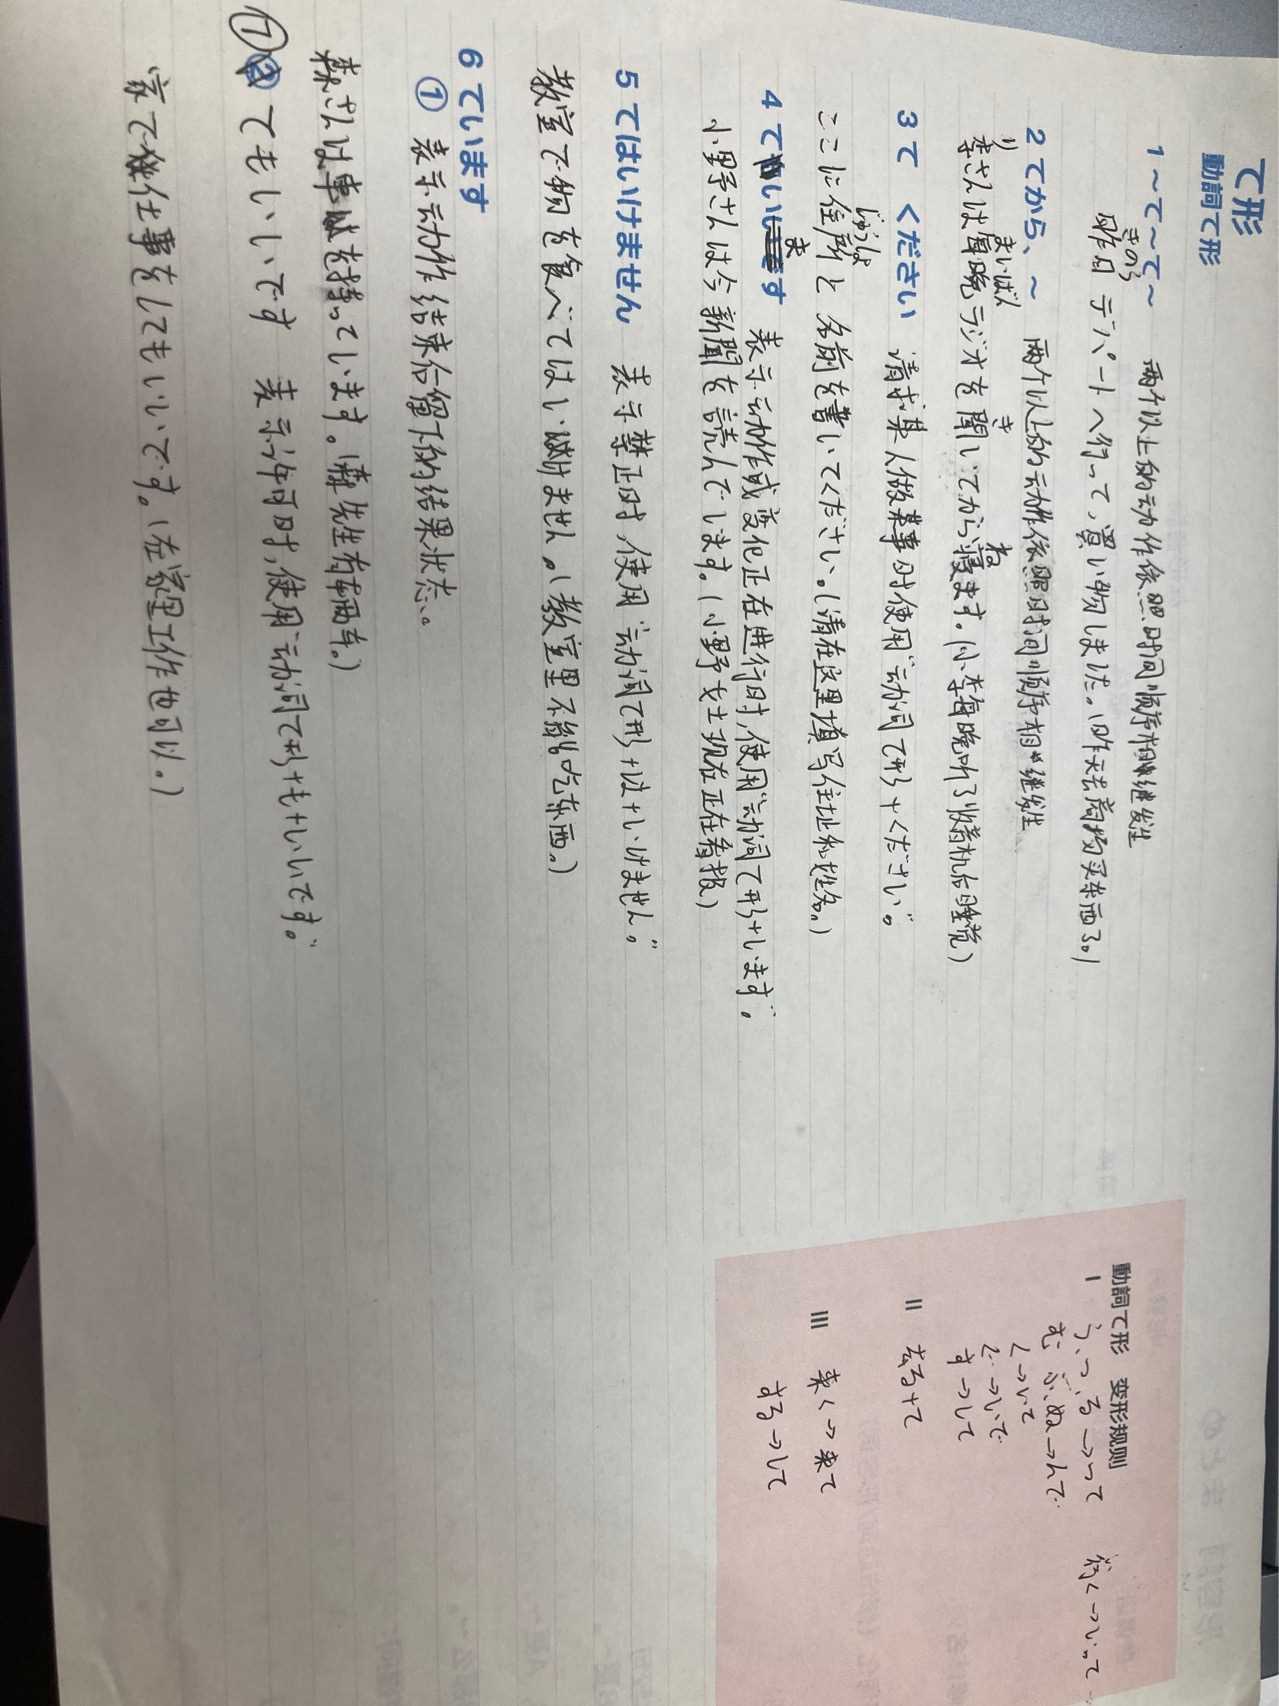 て形
動詞て形
1 ～て～て～ 两个以上的动作依照时间顺序相继发生
きのう
昨日 デパートへ行って，買い物しました。(昨天去商场买东西了。)
2 てから、～ 两个以上的动作依照时间顺序相继发生
り まいばん き ね
李さんは毎晩ラジオを聞いてから寝ます。(小李每晚听了收音机后睡觉)
3 て ください 请求某人做某事时使用“动词て形+ください”。
じゅうしょ
ここに住所と名前を書いてください。(请在这里填写住址和姓名。)
4 ています 表示动作或变化正在进行时，使用“动词て形+います”。
小野さんは今新聞を読んでいます。(小野女士现在正在看报)
5 てはいけません 表示禁止时，使用“动词て形+は+いけません。”
教室で物を食べてはいけません。(教室里不能吃东西。)
6 ています
① 表示动作结束后留下的结果状态。
森さんは車を持っています。(森先生有辆车。)
⑦ てもいいです 表示许可时，使用“动词て形+も+いいです。”
家で仕事をしてもいいです。(在家里工作也可以。)
動詞て形 变形规则
I う、つ、る→って 行く→いって
む ぶ、ぬ→んで
く→いて
ぐ→いで
す→して
II 去る+て
III 来く→来て
する→して